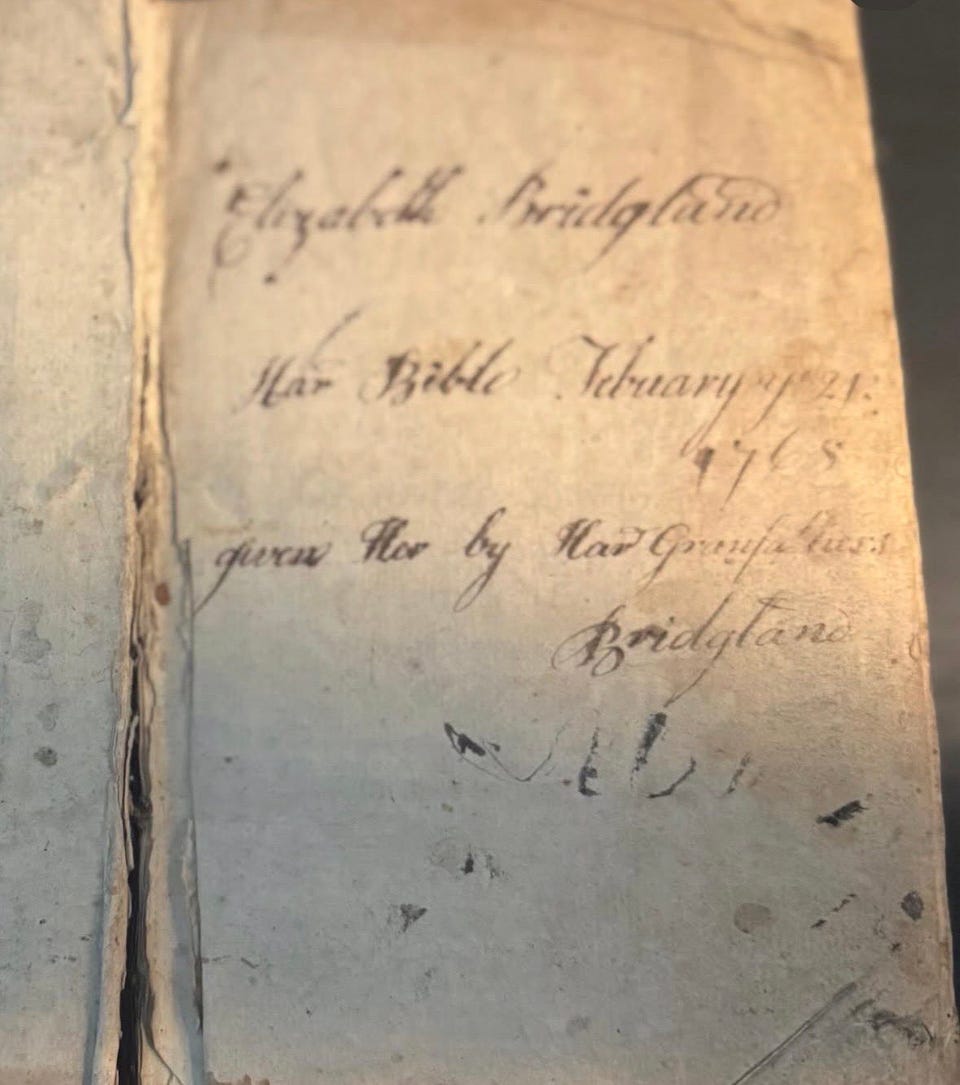 Elizabeth Bridgland
Har Bible Februarry ye 21:
1768
given Her by Har
Bridgland